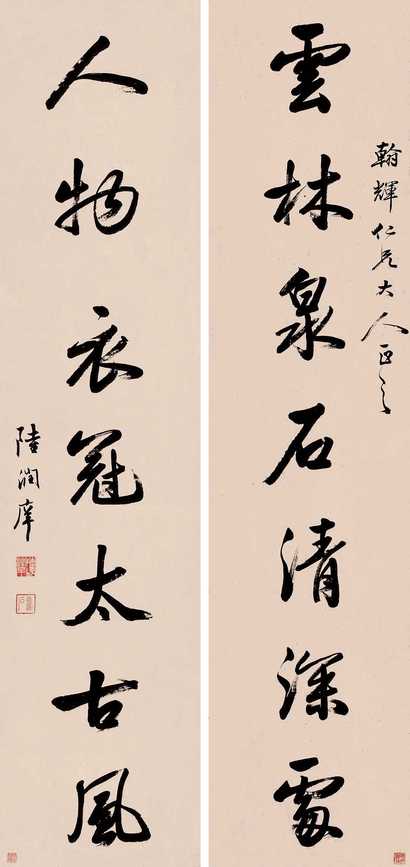 翰輝仁兄大人正之
雲林泉石清深處
人物衣冠太古風
陸潤庠